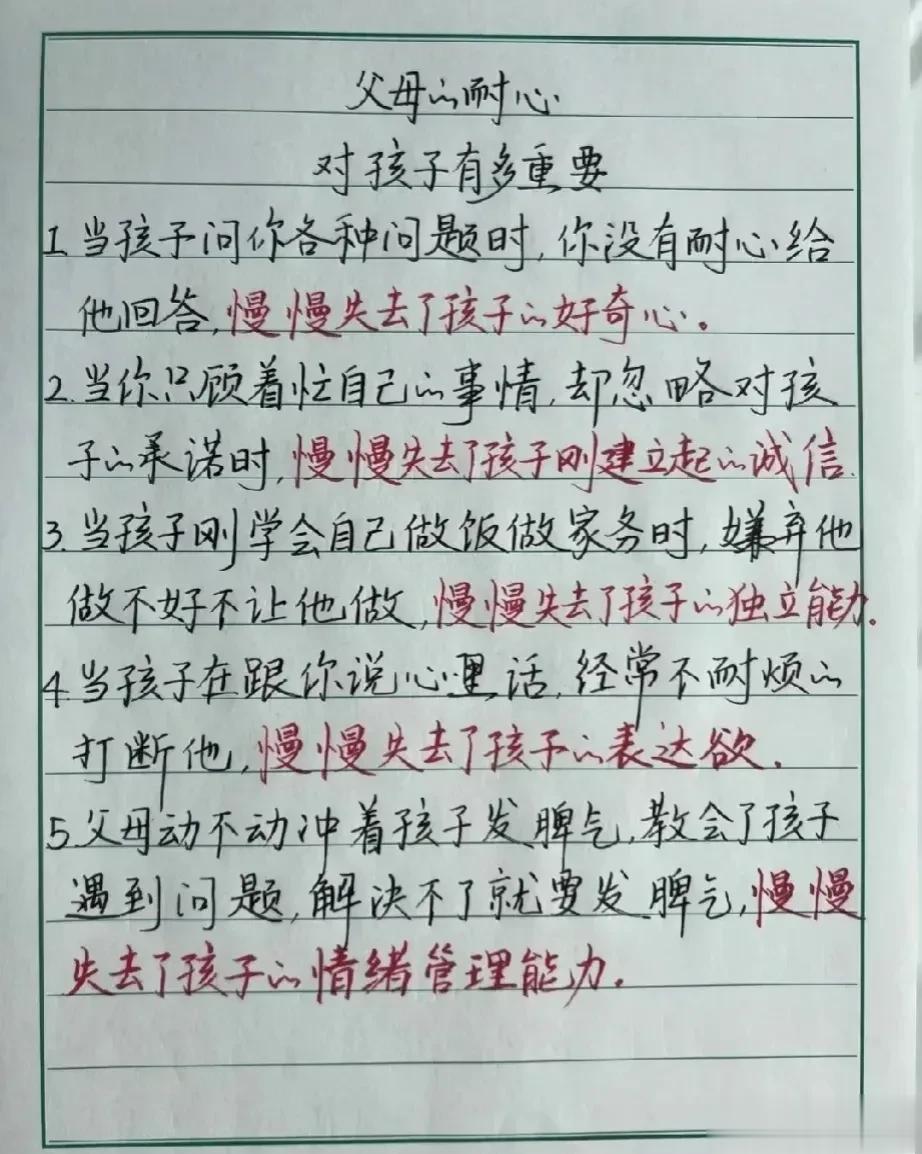 父母的耐心
对孩子有多重要
1.当孩子问你各种问题时,你没有耐心给
他回答,慢慢失去了孩子的好奇心。
2.当你只顾着忙自己的事情,却忽略对孩
子的承诺时,慢慢失去了孩子刚建立起的诚信.
3.当孩子刚学会自己做饭做家务时,嫌弃他
做不好不让他做,慢慢失去了孩子的独立能力.
4.当孩子在跟你说心里话,经常不耐烦的
打断他,慢慢失去了孩子的表达欲.
5.父母动不动冲着孩子发脾气,教会了孩子
遇到问题,解决不了就要发脾气,慢慢
失去了孩子的情绪管理能力.